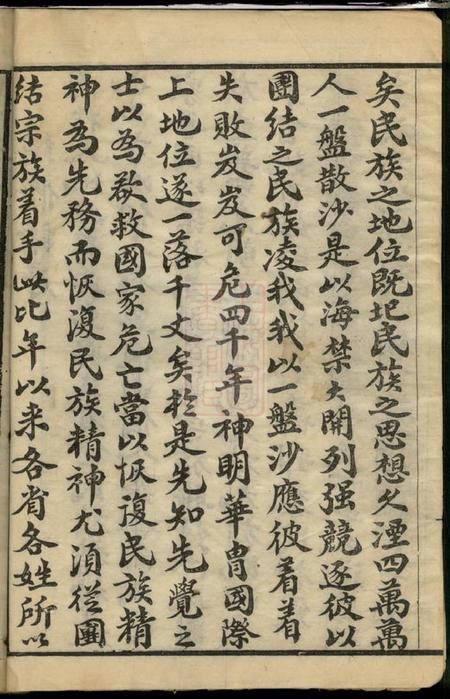 矣民族之地位既圯民族之思想久湮四萬萬
人一盤散沙是以海禁大開列强競逐彼以
團結之民族凌我我以一盤沙應彼着着
失敗岌岌可危四千年神明華胄國際
上地位遂一落千丈矣於是先知先覺之
士以為欲救國家危亡當以恢復民族精
神為先務而恢復民族精神尤須從團
結宗族着手此比年以來各省各姓所以